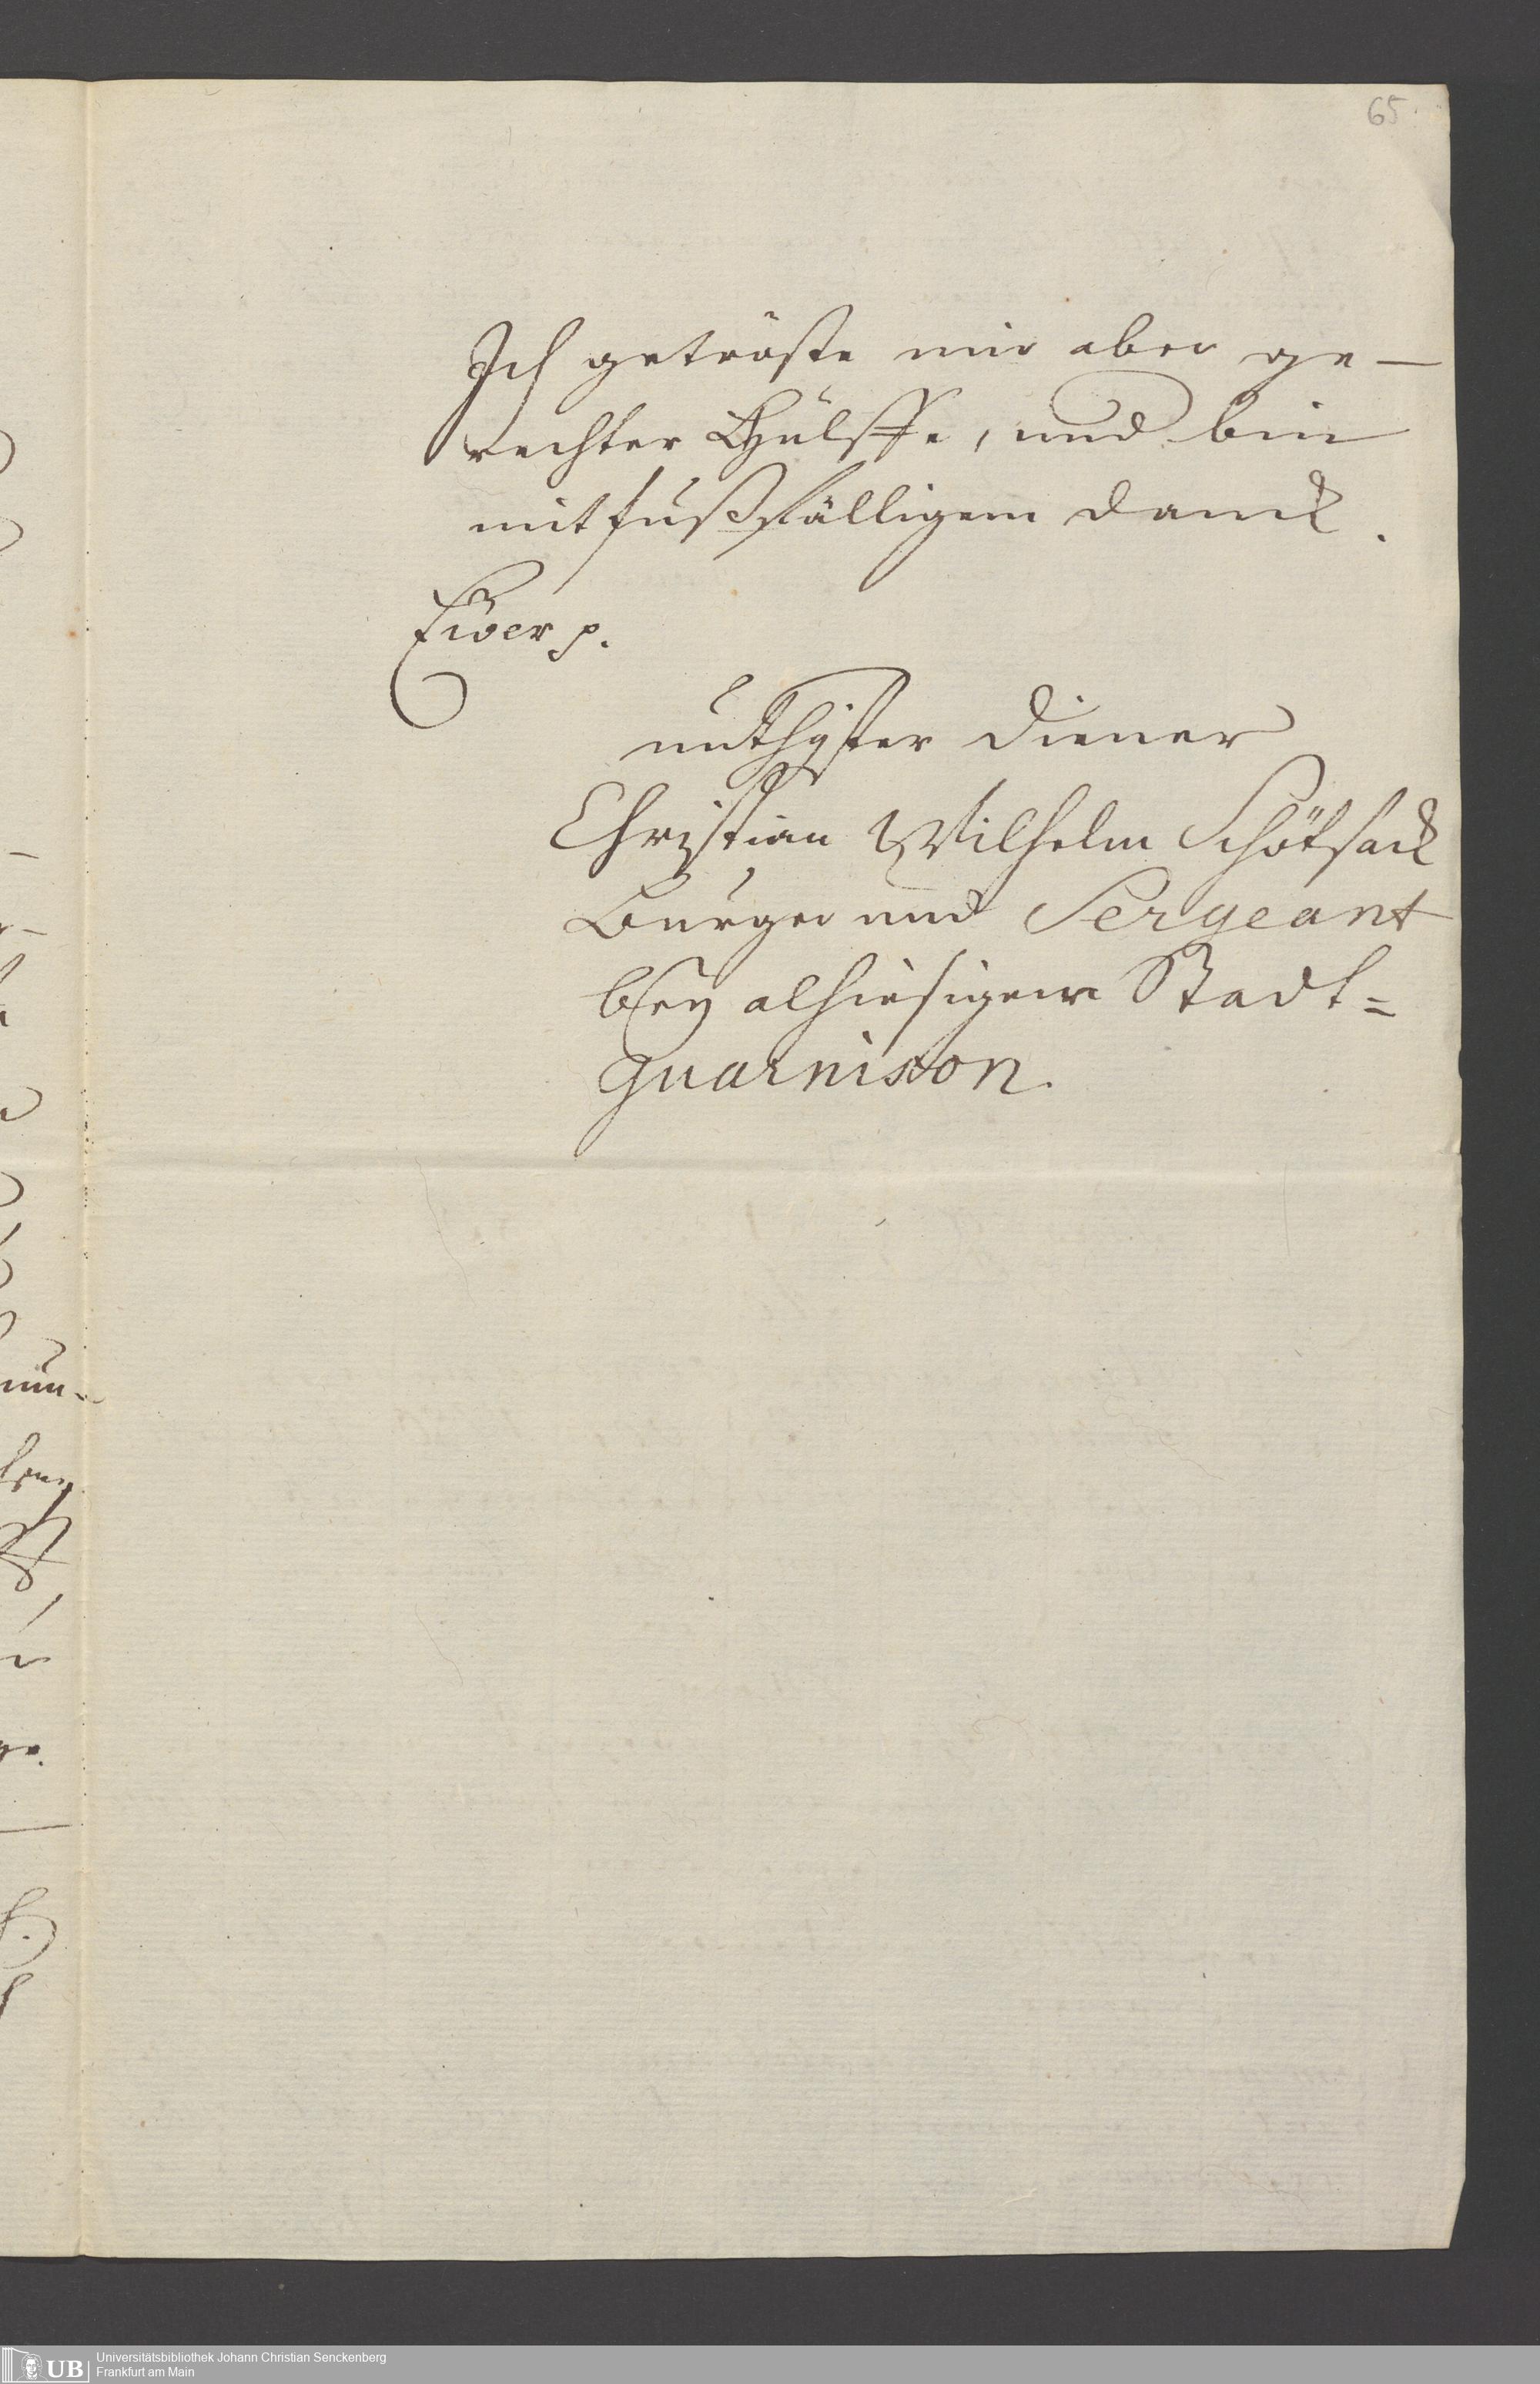 65.
Ich getröste mir aber ge-
rechter Hülffe, und bin
mit fußfälligem danck.
Ewer p.
unthgster Diener
Christian Wilhelm Schötsack
Burger und Sergeant
bey alhiesigem Stadt=
guarnison.
UB
Universitätsbibliothek Johann Christian Senckenberg
Frankfurt am Main